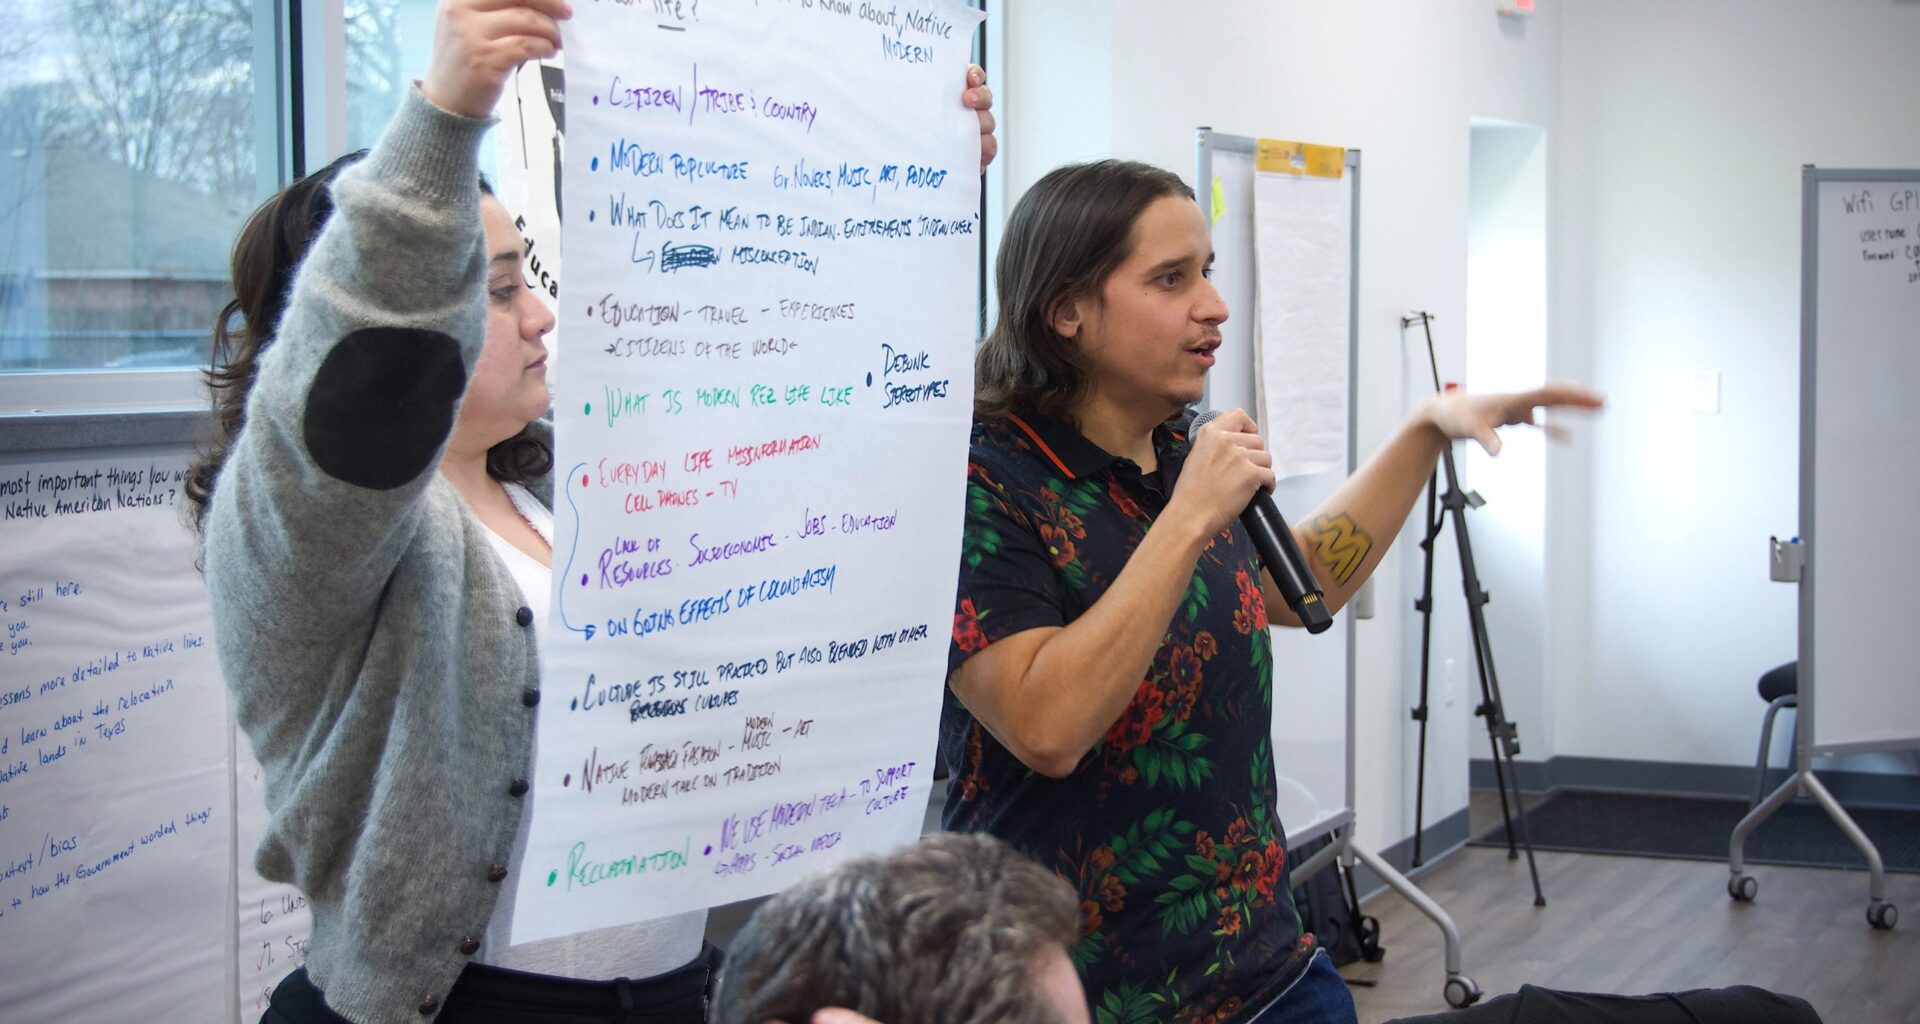 life?
to know about, Native
MODERN
• CITIZEN / TRIBE & COUNTRY
• MODERN POPCULTURE Gr. NOVELS, MUSIC, ART, PODCAST
• WHAT DOES IT MEAN TO BE INDIAN - ENTITLEMENTS "INDIAN CHECK"
↳ MISCONCEPTION
• EDUCATION - TRAVEL - EXPERIENCES
→CITIZENS OF THE WORLD←
• DEBUNK
STEREOTYPES
• WHAT IS MODERN REZ LIFE LIKE
• EVERYDAY LIFE MISINFORMATION
CELL PHONES - TV
LACK OF
• RESOURCES - SOCIOECONOMIC - JOBS - EDUCATION
ON GOING EFFECTS OF COLONIALISM
• CULTURE IS STILL PRACTICED BUT ALSO BLENDED WITH OTHER
CULTURES
• NATIVE FASHION - MODERN MUSIC - ART
MODERN TAKE ON TRADITION
• RECLAMATION
• WE USE MODERN TECH - TO SUPPORT
CULTURE
- SOCIAL MEDIA
most important things you
Native American Nations?
still here.
you.
you.
more detailed to Native lives.
learn about the relocation
lands in Texas
/ bias
how the Government worded things
6.
7.
Educa
Wifi GPI